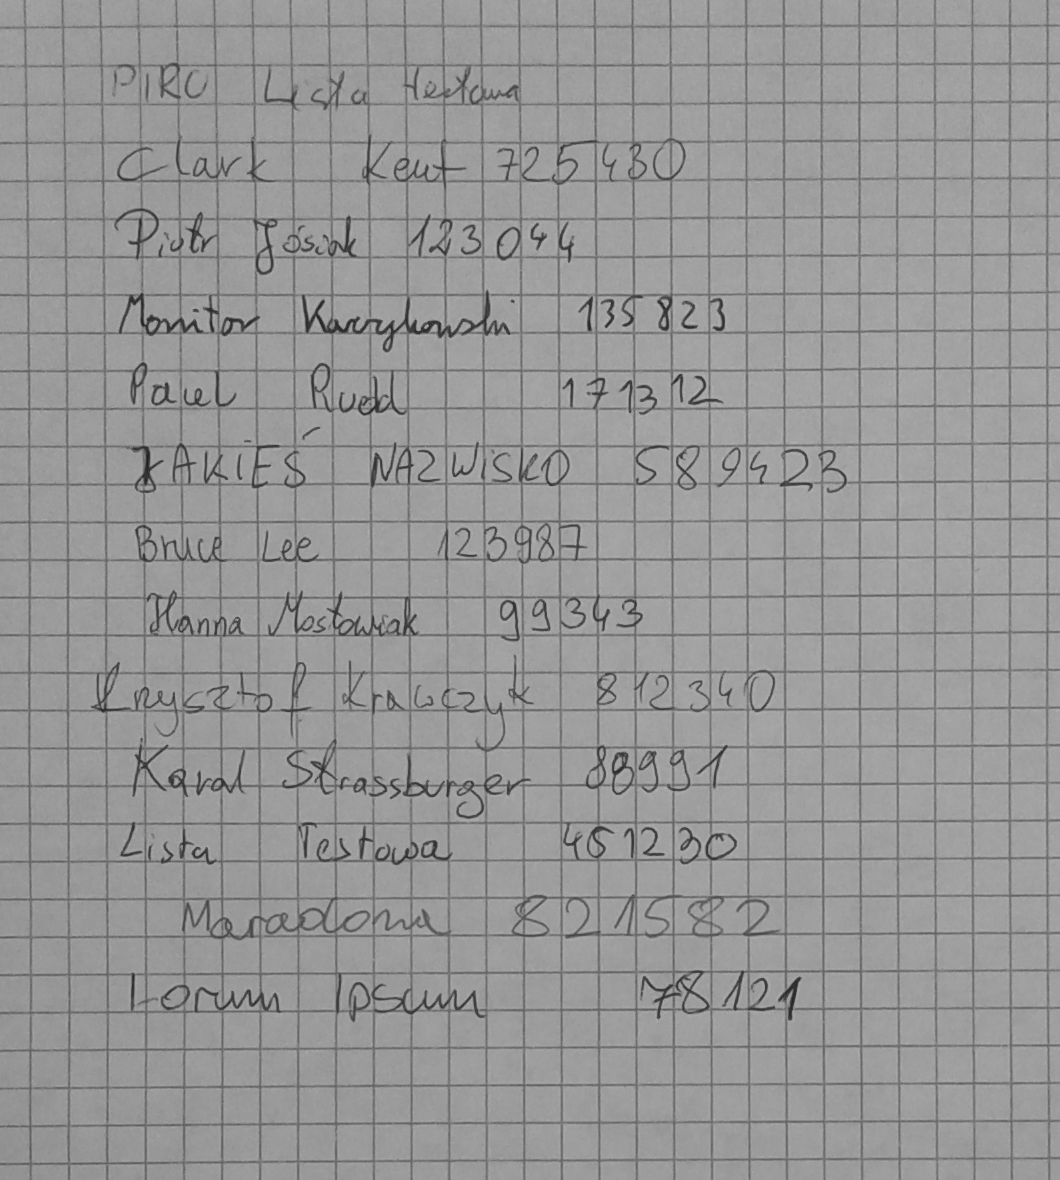 PIRO Lista testowa
Clark Kent 725430
Piotr Jósiak 123044
Monitor Karzykowski 135823
Paweł Rudd 171312
JAKIEŚ NAZWISKO 589423
Bruce Lee 123987
Hanna Mostowiak 99343
Krzysztof Krawczyk 812340
Karal Strassburger 88991
Lista Testowa 451230
Maradona 821582
Lorum Ipsum 78121